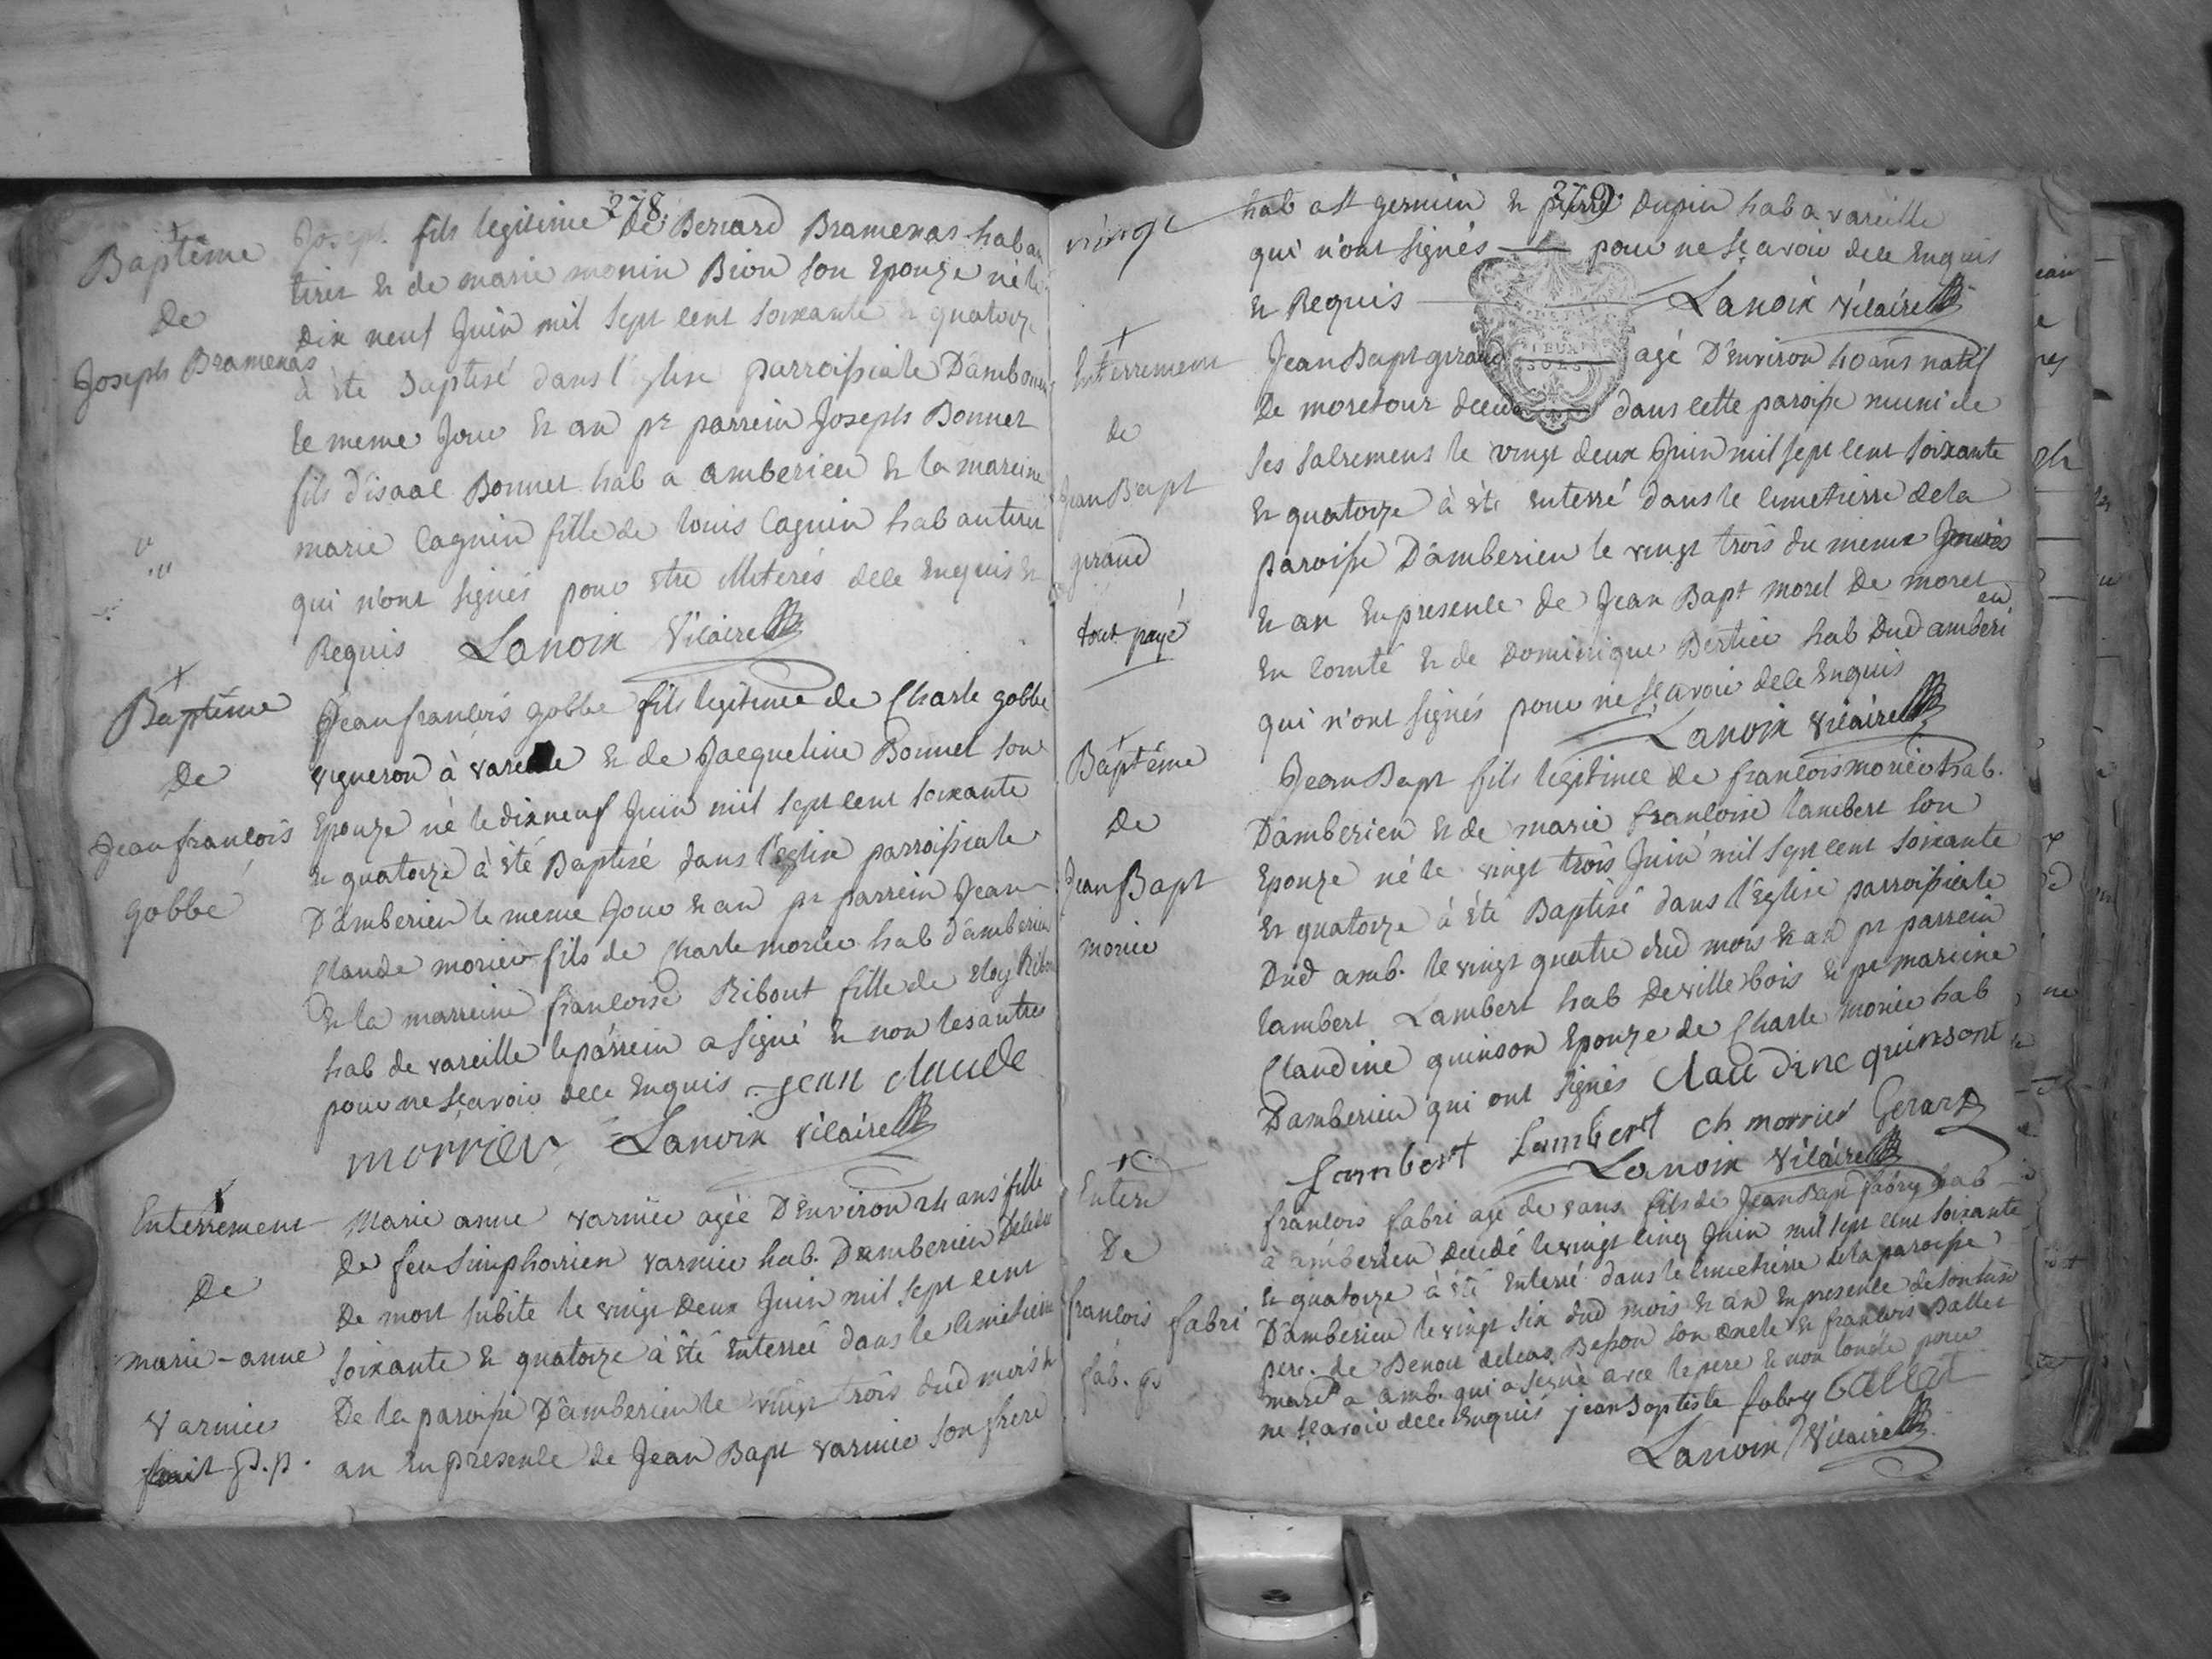 278.
Baptême
de
Joseph Bramenas
Joseph fils legitime de Bernard Bramenas hab au
tiret & de marie monin Bion son Epouze né le
dix neuf Juin mil sept cent soixante & quatorze
à été baptisé dans l'Eglise parroissiale D'amberieu
le meme Jour & an pr parrein Joseph Bonnet
fils d'isaac Bonnet hab a amberieu & la mareine
marie Cagnin fille de louis Cagnin hab au tiret
qui n'ont signés pour etre illiterés dele Enquis &
Requis Lanoix Vicaire
Baptême
De
Jean francois
gobbe
Jean francois gobbe fils legitime de Charle gobbe
vigneron à vareille & de Jacqueline Bonnet son
Epouze né le dix neuf Juin mil sept cent soixante
& quatorze à été Baptisé dans l'eglise parroissiale
D'amberieu le meme Jour & an pr parrein Jean
Claude morier fils de Charle morier hab d'amberieu
& la marreine francoise Ribout fille de Eloy Ribout
hab de vareille le parrein a signé & non les autres
pour ne sçavoir dele Enquis jean claude
morrier Lanoix vicaire
Enterrement
De
marie-anne
varnier
Marie anne varnier agée D'Environ 24 ans fille
De feu Simphorien varnier hab. D'amberieu Decedée
De mort subite le vingt Deux Juin mil sept cent
soixante & quatorze à été Enterrée dans le cimetierre
De la paroisse D'amberieu le vingt trois dud mois &
an En presence de Jean Bapt varnier son frere
279.
hab a st germain & pierre Dupin hab a vareille
qui n'ont signés pour ne sçavoir dele Enquis
& Requis Lanoix Vicaire
Enterrement
de
Jean Bapt
giraud
tout payé
Jean Bapt giraud agé D'Environ 40 ans natif
De moretour decedé dans cette paroisse muni de
ses sacremens le vingt deux Juin mil sept cent soixante
& quatorze à été Enterré dans le cimetierre de la
paroisse D'amberieu le vingt trois du meme
& an En presence de Jean Bapt morel De moret
En Comté & de Dominique Bertier hab Dud amberieu
qui n'ont signés pour ne sçavoir dele Enquis
Lanoix Vicaire
Baptême
De
Jean Bapt
morier
Jean Bapt fils legitime de francois morier hab.
D'amberieu & de marie francoise lambert son
Epouze né le vingt trois Juin mil sept cent soixante
& quatorze à été Baptisé dans l'Eglise parroissiale
Dud amb. le vingt quatre dud mois & an pr parrein
lambert Lambert hab De villebois & pr mareine
Claudine quinson Epouze de Charle morier hab
D'amberieu qui ont signés Claudine quinsont
Lambert Lambert ch morrier Gerard
Lanoix Vicaire
Enterr
De
francois fabri
francois fabri agé de ans fils de Jean Bap fabry hab
à amberieu decedé le vingt cinq Juin mil sept cent soixante
& quatorze à été Enterré dans le cimetierre de la paroisse
D'amberieu le vingt six dud mois & an En presence de son
pere. de Benoit Besson son oncle & francois Ballet
mard a amb. qui a signé avec le pere & non loncle pour
ne sçavoir dele Enquis jean baptiste fabry ballet
Lanoix Vicaire